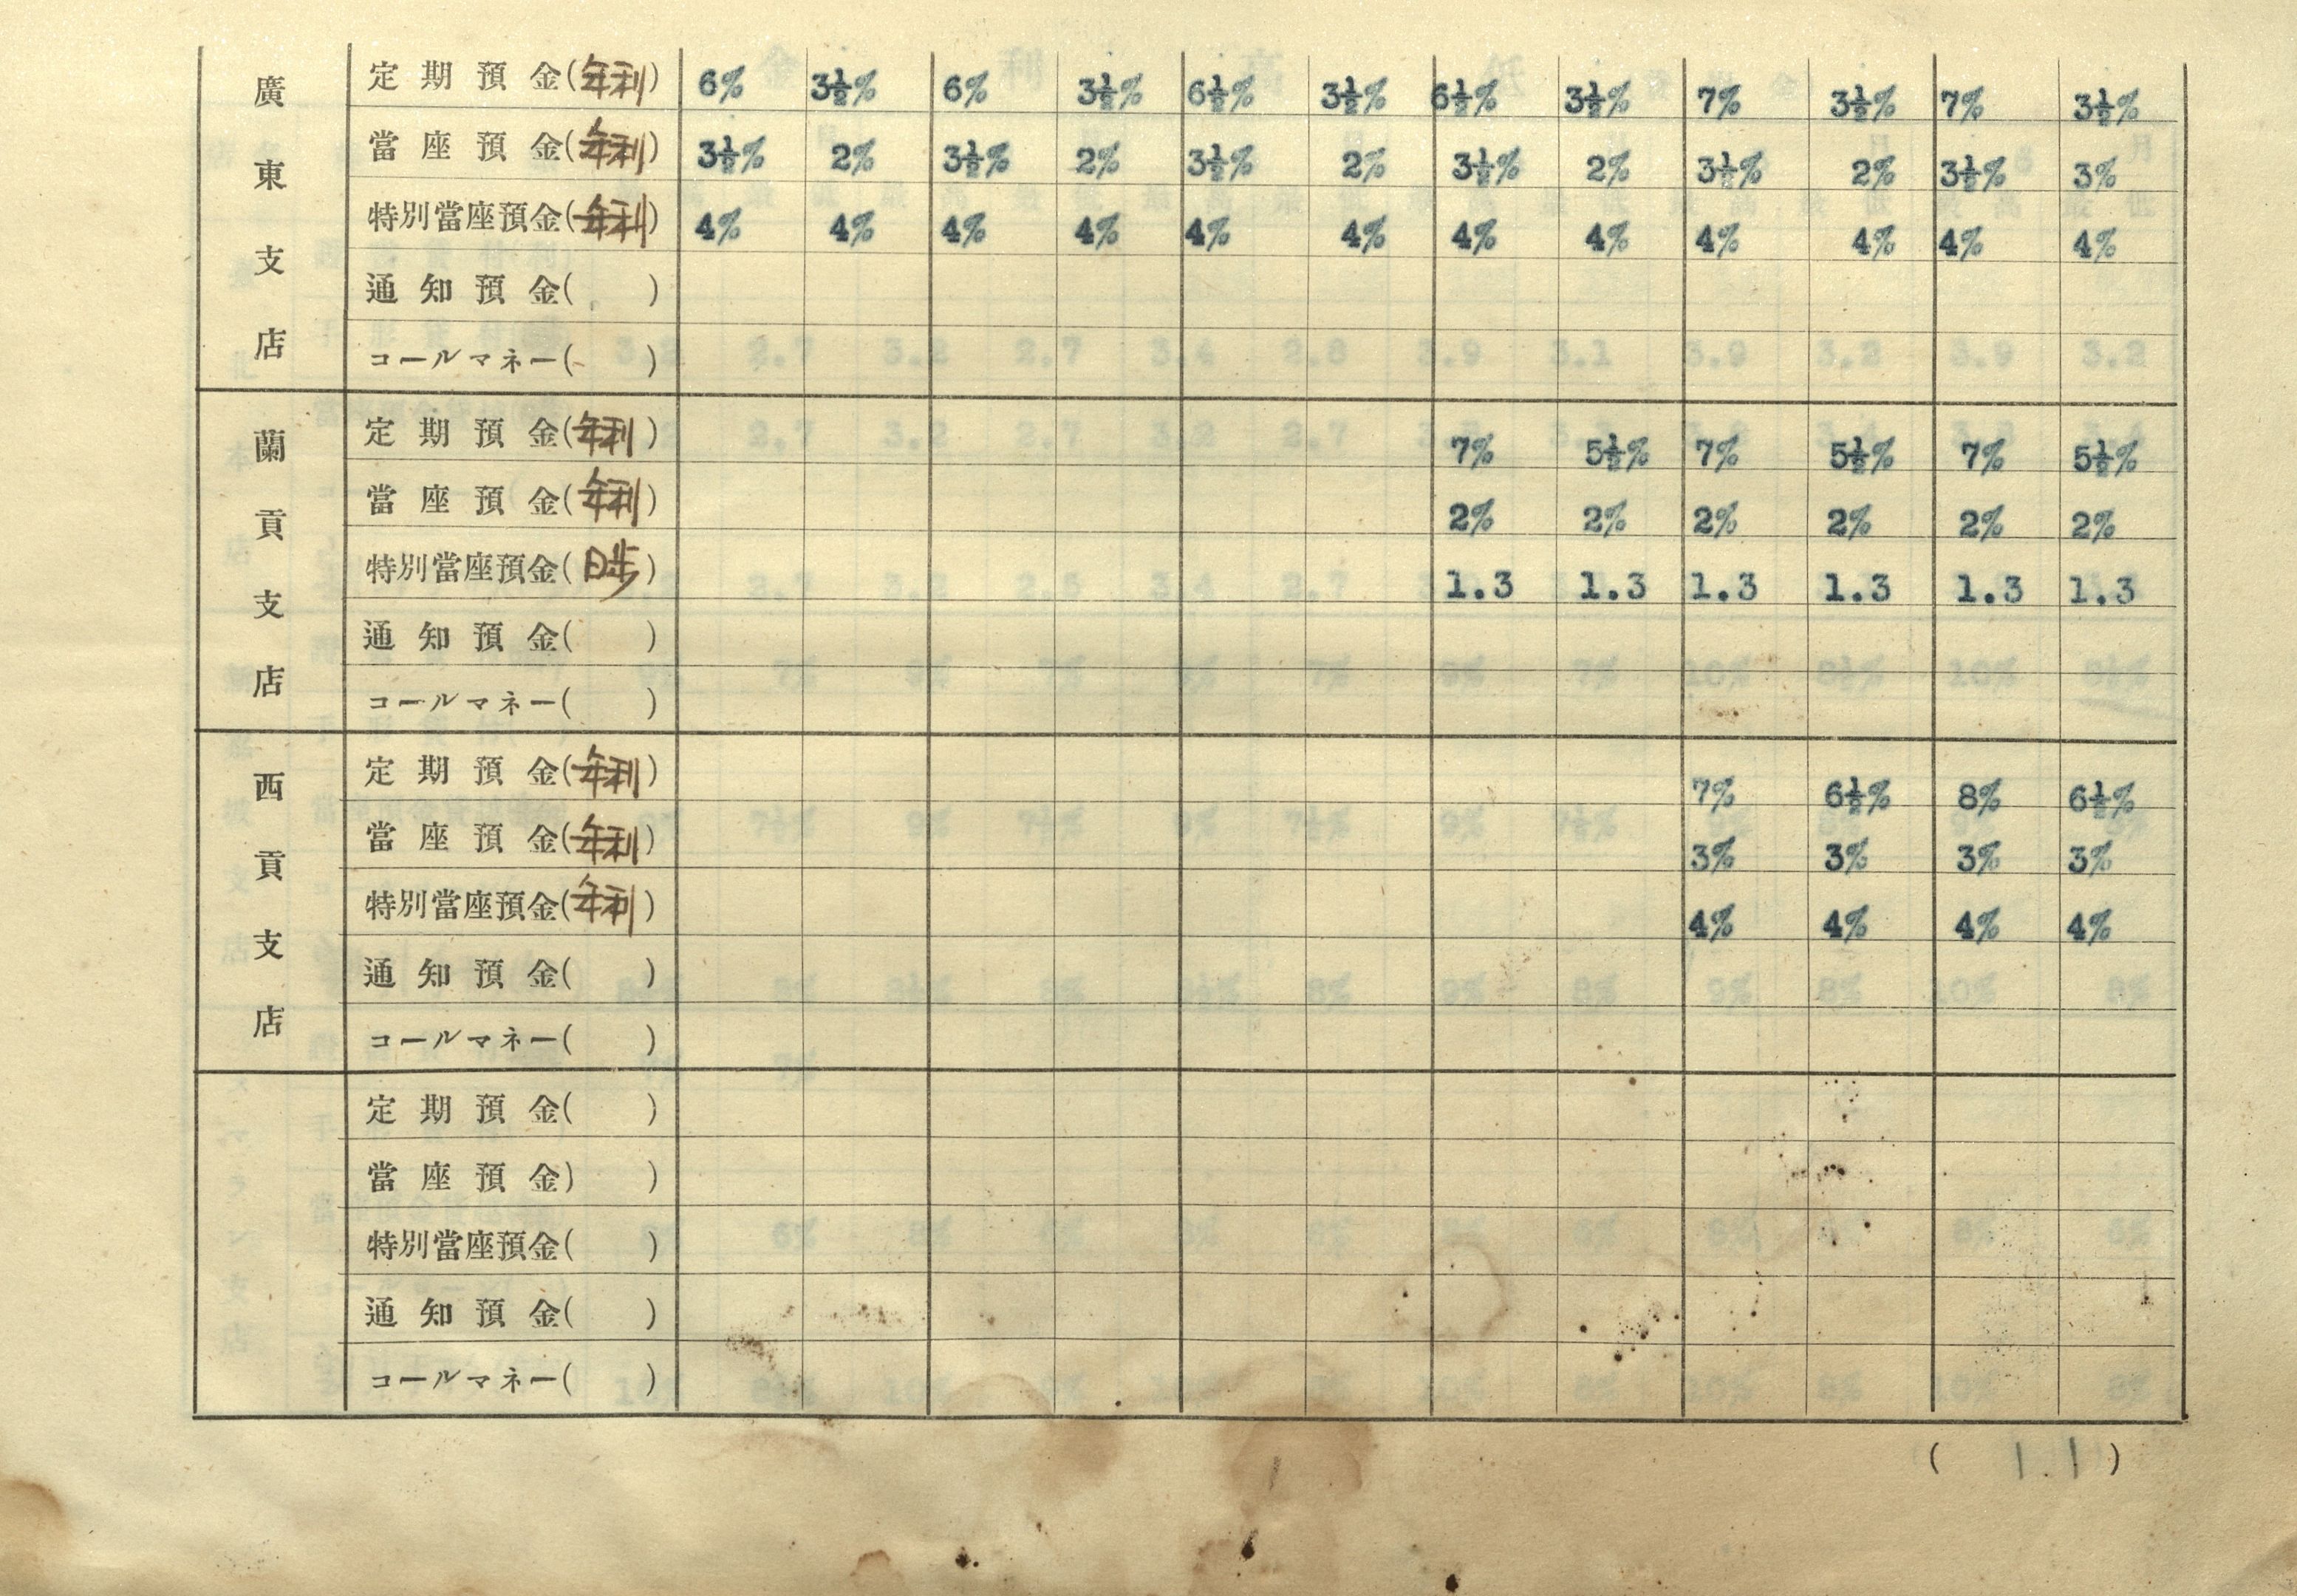 廣東支店
定期預金(年利) 6% 3½% 6% 3½% 6½% 3½% 6½% 3½% 7% 3½% 7% 3½%
當座預金(年利) 3½% 2% 3½% 2% 3½% 2% 3½% 2% 3½% 2% 3½% 3%
特別當座預金(年利) 4% 4% 4% 4% 4% 4% 4% 4% 4% 4% 4% 4%
通知預金( )
コールマネー( )
蘭貢支店
定期預金(年利) 7% 5½% 7% 5½% 7% 5½%
當座預金(年利) 2% 2% 2% 2% 2% 2%
特別當座預金(日歩) 1.3 1.3 1.3 1.3 1.3 1.3
通知預金( )
コールマネー( )
西貢支店
定期預金(年利) 7% 6½% 8% 6½%
當座預金(年利) 3% 3% 3% 3%
特別當座預金(年利) 4% 4% 4% 4%
通知預金( )
コールマネー( )
定期預金( )
當座預金) )
特別當座預金( )
通知預金( )
コールマネー( )
( 1.1 )